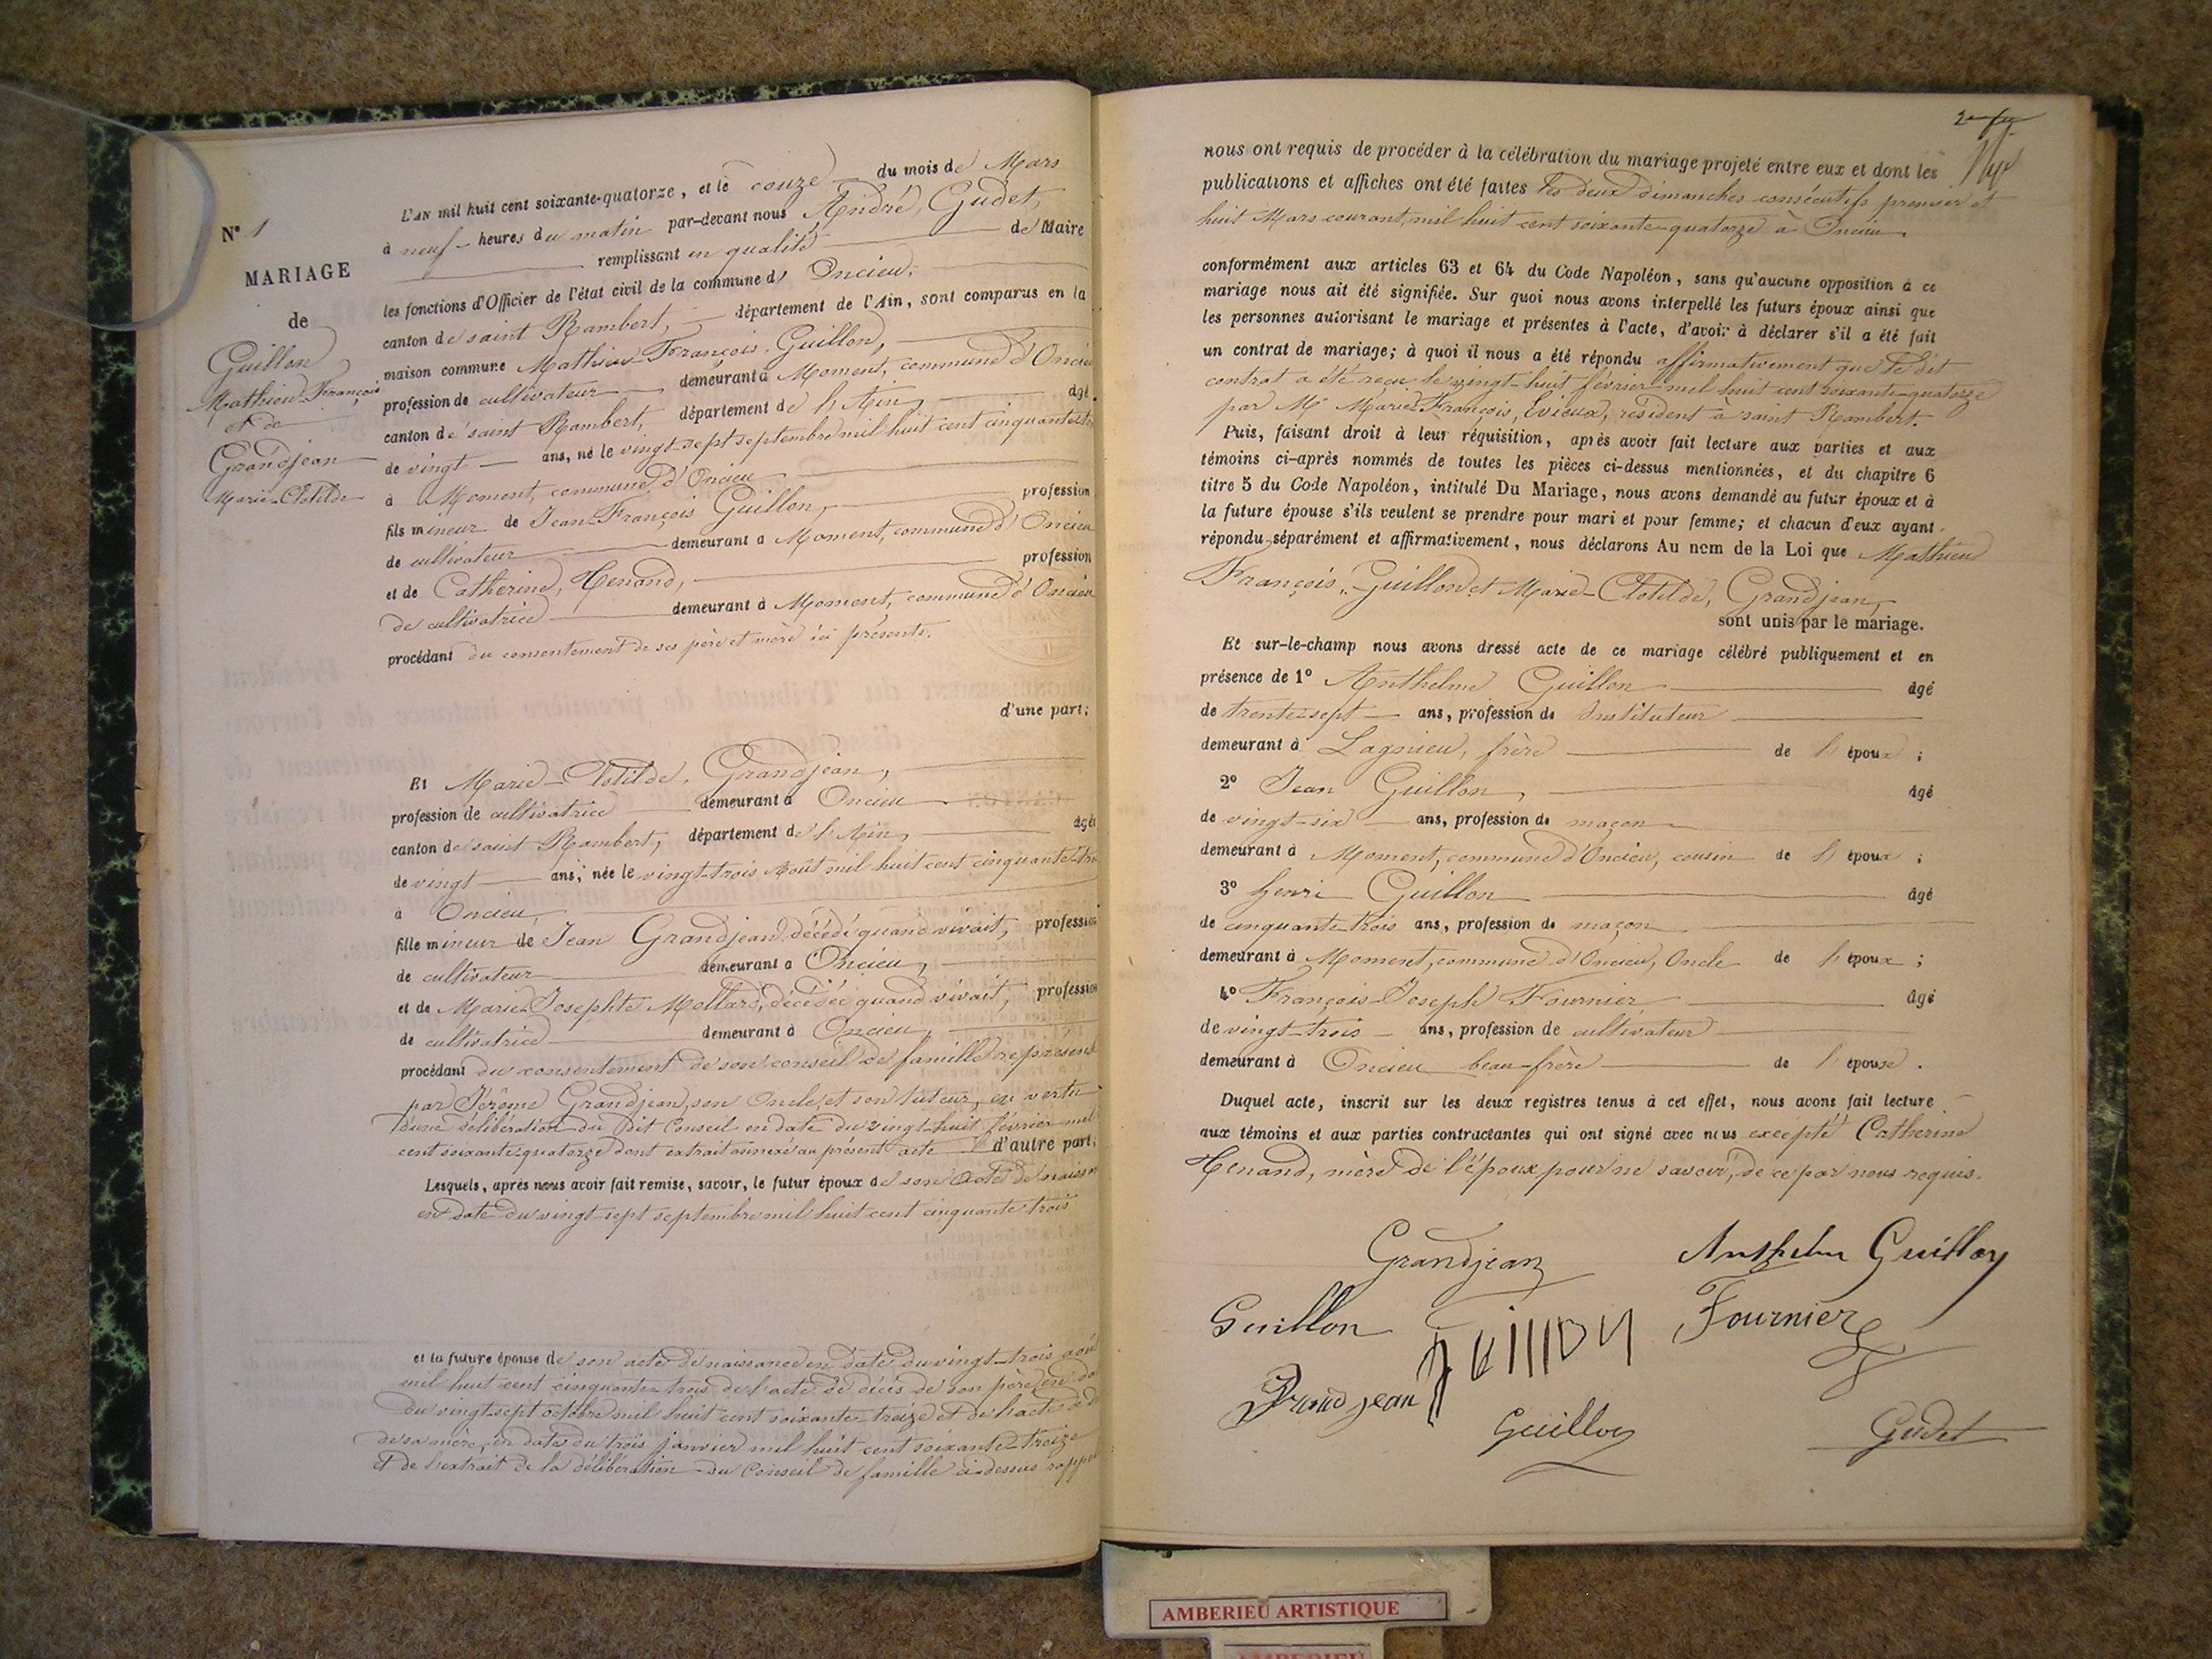 N° 1
MARIAGE
de
Guillon
Mathieu-François
et de
Grandjean
Marie-Clotilde
L'AN mil huit cent soixante-quatorze, et le onze du mois de Mars
à neuf heures du matin par-devant nous André, Gudet,
remplissant en qualité de Maire
les fonctions d'Officier de l'état civil de la commune d' Oncieu,
canton de saint Rambert, département de l'Ain, sont comparus en la
maison commune Mathieu-François, Guillon,
profession de cultivateur demeurant à Moment, commune d'Oncieu
canton de saint Rambert, département de l'Ain, âgé
de vingt ans, né le vingt-sept septembre mil huit cent cinquante
à Moment, commune d'Oncieu
fils mineur de Jean-François Guillon, profession
de cultivateur demeurant à Moment, commune d'Oncieu
et de Catherine, Henand, profession
de cultivatrice demeurant à Moment, commune d'Oncieu
procédant du consentement de ses père et mère ici présents.
d'une part;
Et Marie-Clotilde, Grandjean,
profession de cultivatrice demeurant à Oncieu
canton de saint Rambert, département de l'Ain, âgée
de vingt ans, née le vingt-trois Août mil huit cent cinquante-tr
à Oncieu,
fille mineur de Jean Grandjean, décédé quand vivait, profession
de cultivateur demeurant à Oncieu,
et de Marie-Josephte Mollard, décédée quand vivait, profession
de cultivatrice demeurant à Oncieu,
procédant du consentement de son conseil de famille représenté
par Jérôme Grandjean, son Oncle, et son tuteur, en vertu
d'une délibération du dit Conseil en date du vingt-huit février mil
cent soixante-quatorze dont extrait annexé au présent acte d'autre part;
Lesquels, après nous avoir fait remise, savoir, le futur époux de son acte de naissan
en date du vingt-sept septembre mil huit cent cinquante trois
et la future épouse de son acte de naissance en date du vingt-trois août
mil huit cent cinquante-trois, de l'acte de décès de son père en da
du vingt-sept octobre mil huit cent soixante-treize et de l'acte de d
de sa mère, en date du trois janvier mil huit cent soixante-treize
et de l'extrait de la délibération du Conseil de famille ci-dessus rappe
nous ont requis de procéder à la célébration du mariage projeté entre eux et dont les
publications et affiches ont été faites les deux dimanches consécutifs premier et
huit Mars courant, mil huit cent soixante-quatorze à Oncieu.
conformément aux articles 63 et 64 du Code Napoléon, sans qu'aucune opposition à ce
mariage nous ait été signifiée. Sur quoi nous avons interpellé les futurs époux ainsi que
les personnes autorisant le mariage et présentes à l'acte, d'avoir à déclarer s'il a été fait
un contrat de mariage; à quoi il nous a été répondu affirmativement que le dit
contrat a été reçu, le vingt-huit février mil huit cent soixante-quatorze
par Me Marie-François, Evieux, résident à saint Rambert.
Puis, faisant droit à leur réquisition, après avoir fait lecture aux parties et aux
témoins ci-après nommés de toutes les pièces ci-dessus mentionnées, et du chapitre 6
titre 5 du Code Napoléon, intitulé Du Mariage, nous avons demandé au futur époux et à
la future épouse s'ils veulent se prendre pour mari et pour femme; et chacun d'eux ayant
répondu séparément et affirmativement, nous déclarons Au nom de la Loi que Mathieu
François, Guillon et Marie-Clotilde, Grandjean,
sont unis par le mariage.
Et sur-le-champ nous avons dressé acte de ce mariage célébré publiquement et en
présence de 1° Anthelme Guillon âgé
de trente-sept ans, profession de Instituteur
demeurant à Lagnieu, frère de l'époux ;
2° Jean Guillon, âgé
de vingt-six ans, profession de maçon
demeurant à Moment, commune d'Oncieu, cousin de l'époux ;
3° Henri Guillon âgé
de cinquante-trois ans, profession de maçon
demeurant à Moment, commune d'Oncieu, Oncle de l'époux ;
4° François-Joseph Fournier âgé
de vingt-trois ans, profession de cultivateur
demeurant à Oncieu beau-frère de l'épouse .
Duquel acte, inscrit sur les deux registres tenus à cet effet, nous avons fait lecture
aux témoins et aux parties contractantes qui ont signé avec nous excepté Catherine
Henand, mère de l'époux pour ne savoir, de ce par nous requis.
Grandjean Anthelme Guillon
Guillon guillon Fournier
Grandjean Guillon Gudet
AMBERIEU ARTISTIQUE
AMBERIEU